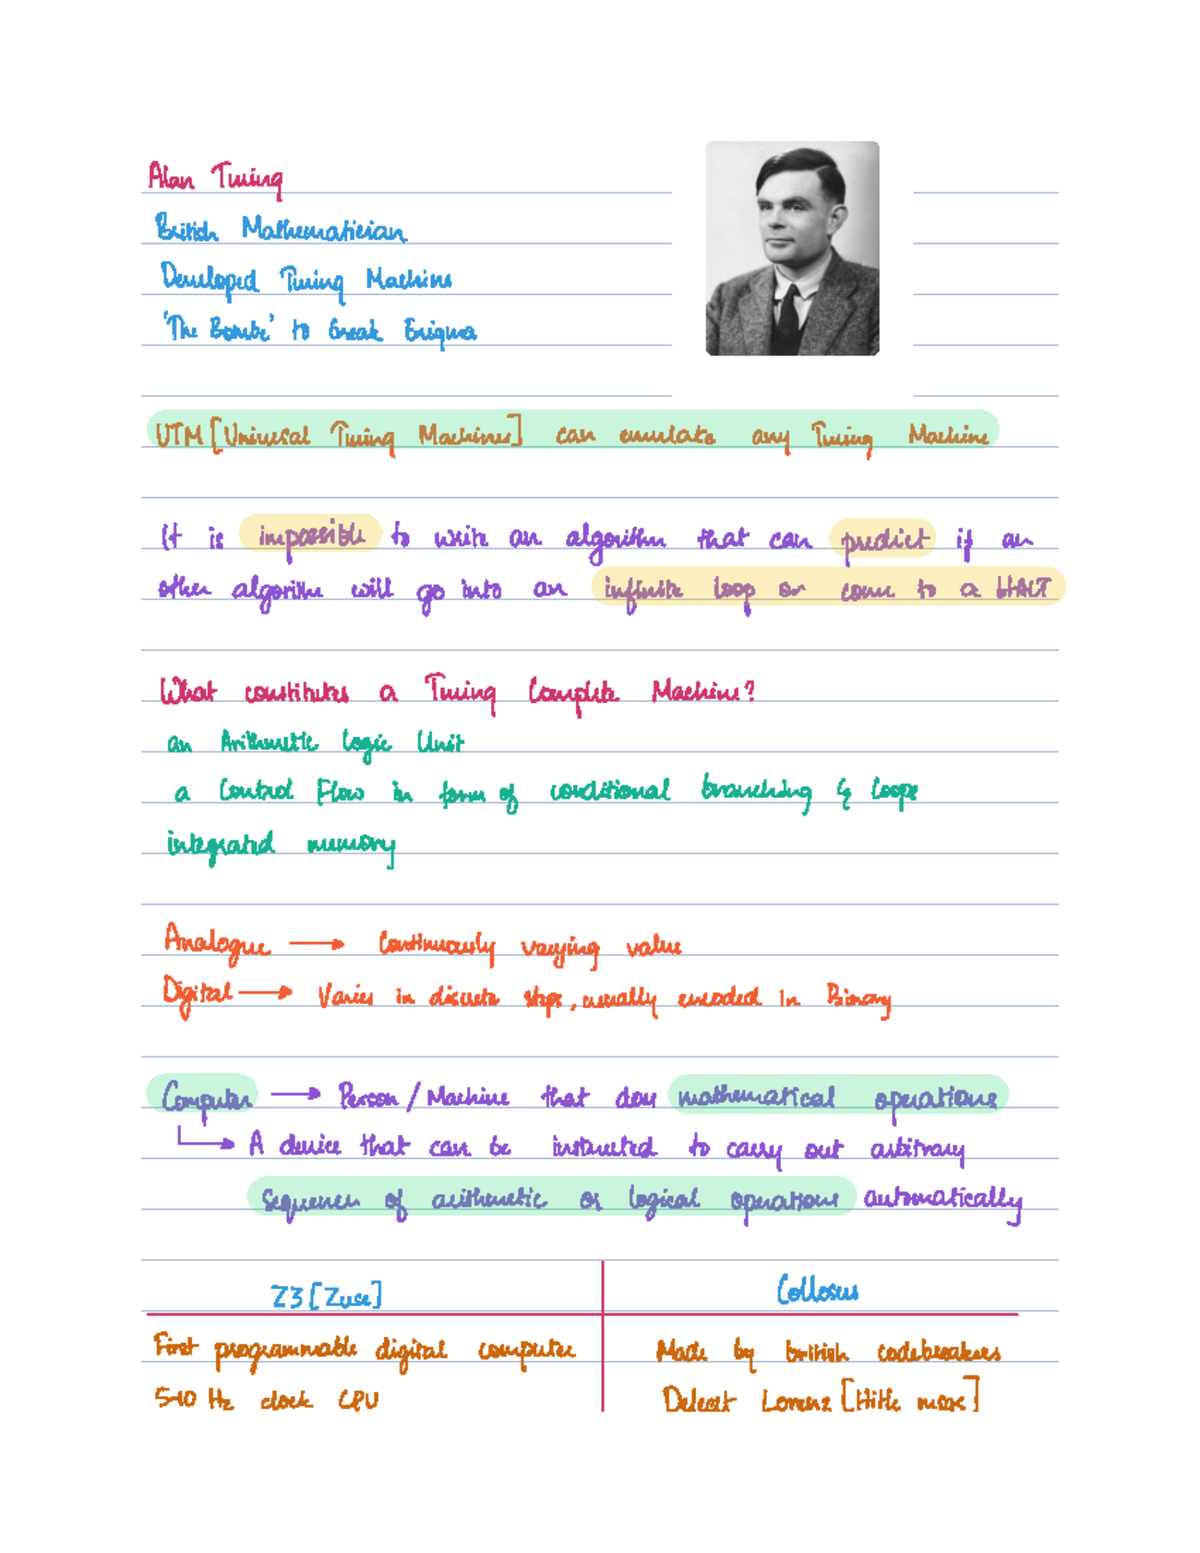 Alan Turing
British Mathematician
Developed Turing Machine
'The Bombe' to break Enigma
UTM [Universal Turing Machines] can emulate any Turing Machine
It is impossible to write an algorithm that can predict if an
other algorithm will go into an infinite loop or come to a HALT
What constitutes a Turing Complete Machine?
an Arithmetic Logic Unit
a Control Flow in form of conditional branching & loops
integrated memory
Analogue → Continuously varying value
Digital → Varies in discrete steps, usually encoded in Binary
Computer → Person/Machine that does mathematical operations
→ A device that can be instructed to carry out arbitrary
sequences of arithmetic or logical operations automatically
Z3 [Zuse] Collosus
First programmable digital computer Made by british codebreakers
5-10 Hz clock CPU Defeat Lorenz